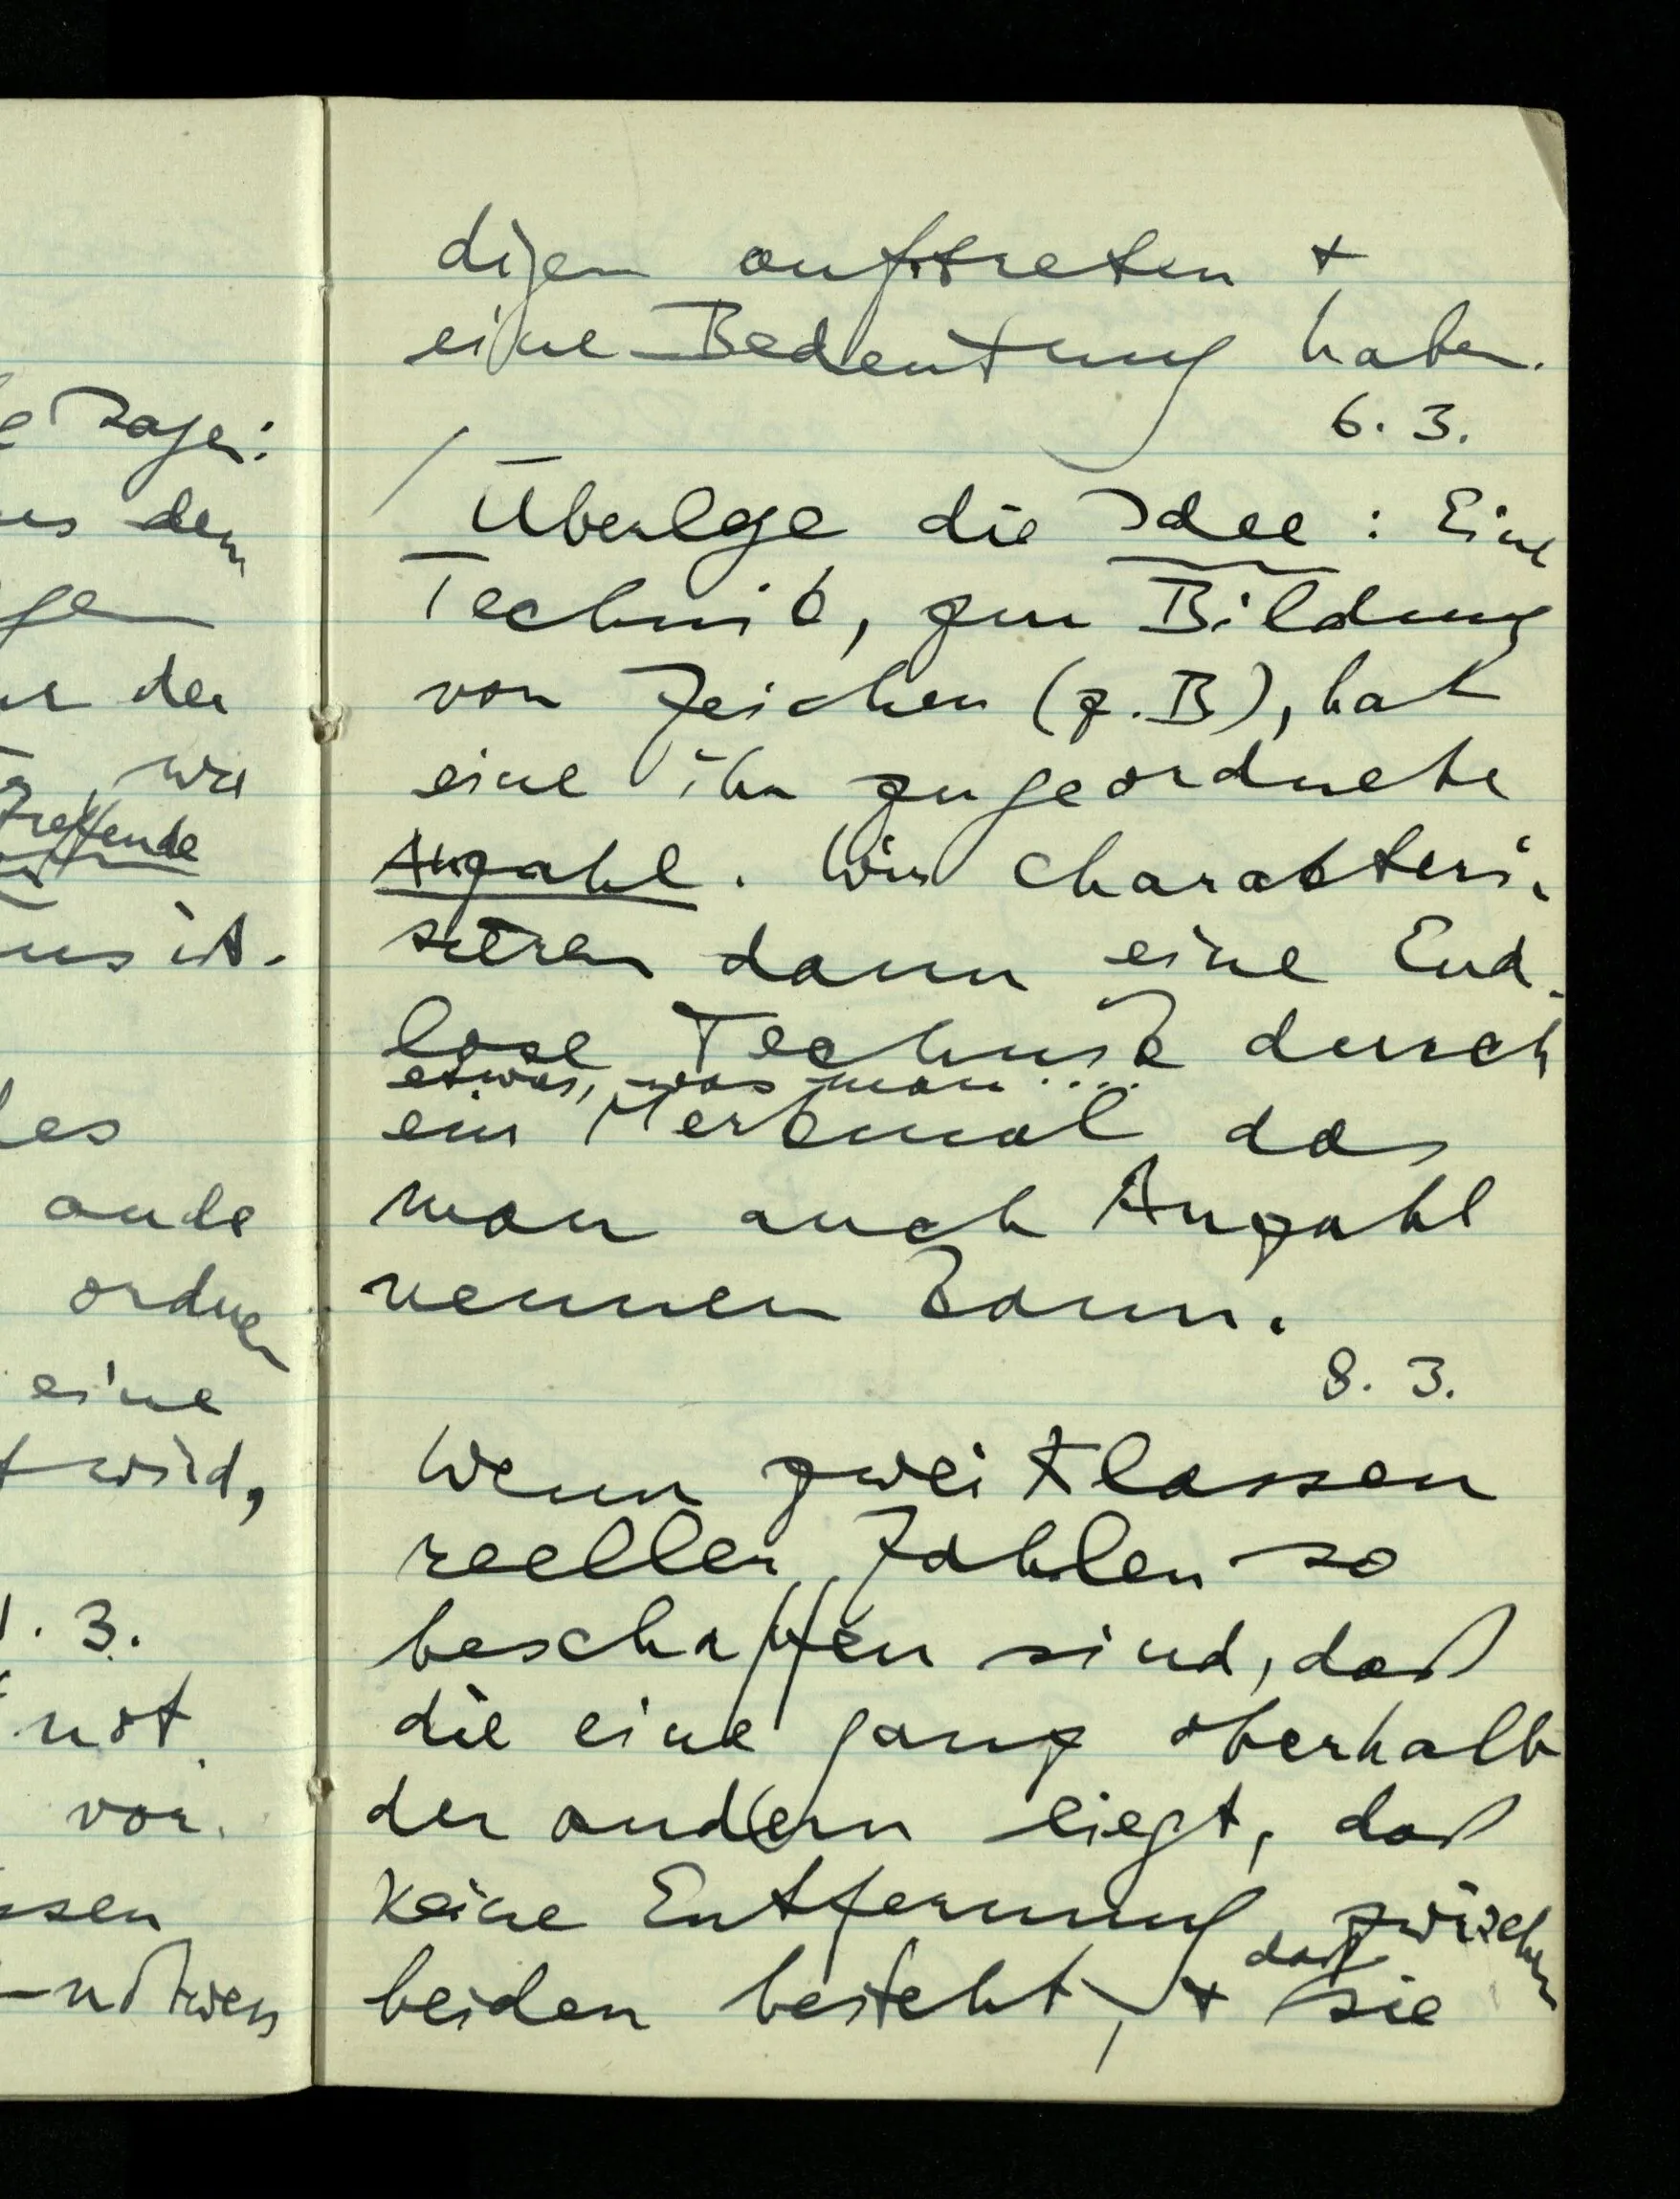 e sagen:
es dem
gen
er der
, wie
treffende
uns ist.
les
ande
ordnen
eine
wird,
. 3.
not
vor.
ssen
notwen
digen auftreten +
eine Bedeutung haben.
6. 3.
/ Überlege die Idee : Eine
Technik, zur Bildung
von Zeichen (z. B), hat
eine ihr zugeordnete
Anzahl. Wir charakteri-
sieren dann eine End-
lose Technik durch
etwas, was man ....
ein Merkmal das
man auch Anzahl
nennen kann.
8. 3.
Wenn zwei Klassen
reeller Zahlen so
beschaffen sind, daß
die eine ganz oberhalb
der andern liegt, daß
keine Entfernung zwischen
daß
beiden besteht, + sie